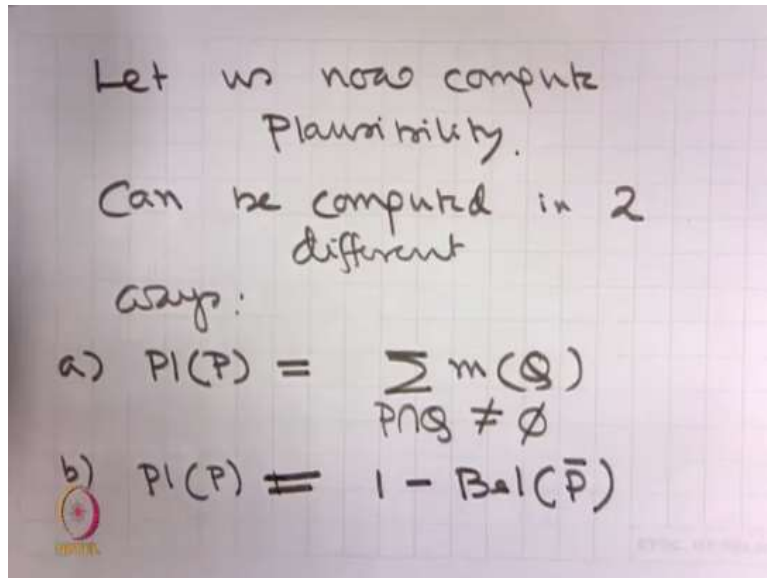 Let us now compute
Plausibility.
Can be computed in 2
different
ways:
a) Pl(P) = ∑ m(Q)
P∩Q ≠ ∅
b) Pl(P) = 1 - Bel(P̄)
NPTEL